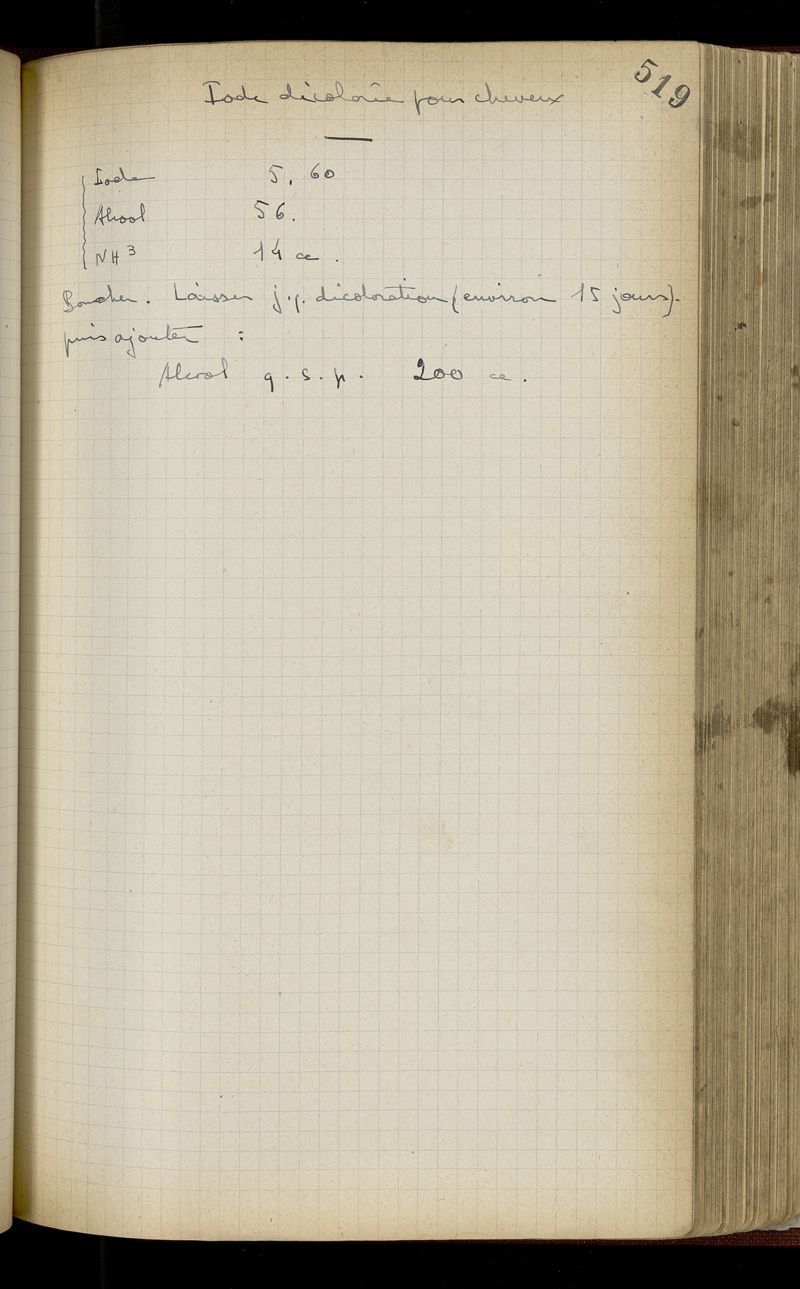 519
Iode décolorée pour cheveux
Iode 5,60
Alcool 56.
NH3 14 cc.
Boucher. Laisser j.q. décoloration (environ 15 jours).
puis ajouter :
Alcool q.s.p. 200 cc.